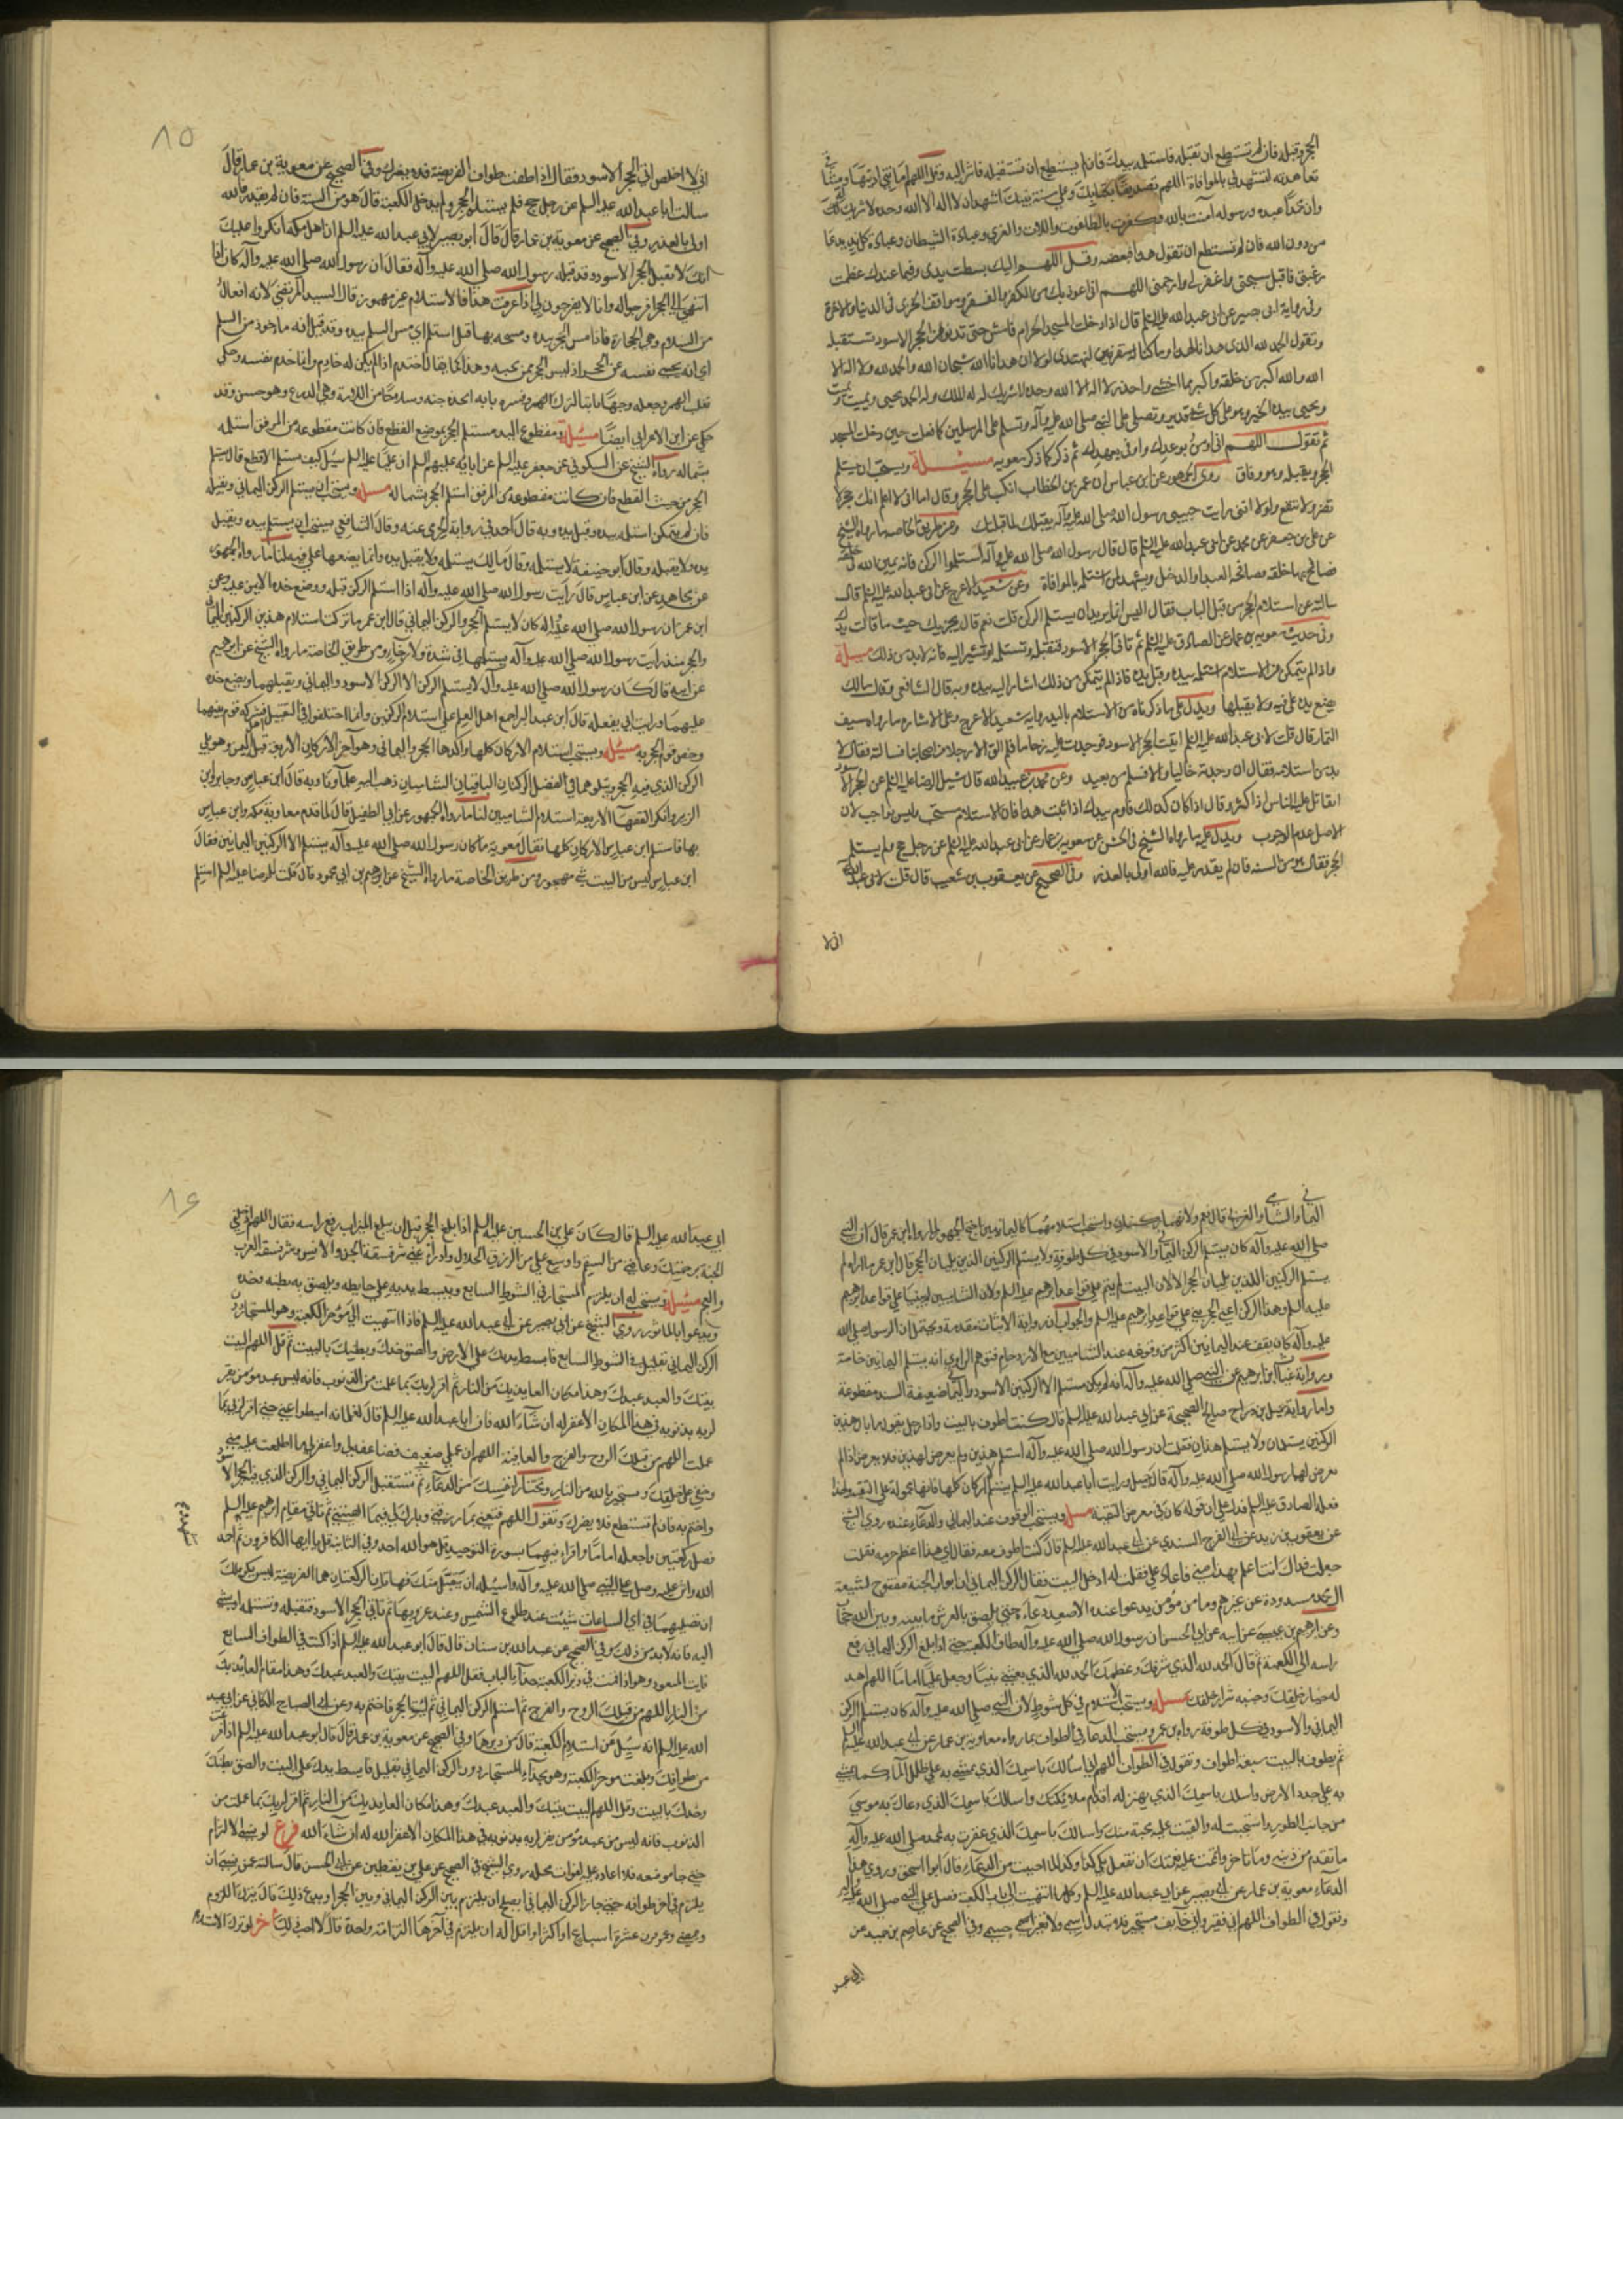 الحجر وقبله فان لم تستطع ان تقبله فاستلمه بيدك فان لم تستطع ان تستقبله فاشر اليه وقل اللهم امانتي اديتها وميثاقي
تعاهدته لتشهد لي بالموافاة اللهم تصديقا بكتابك وعلى سنة نبيك اشهد ان لا اله الا الله وحده لا شريك له
وان محمدا عبده ورسوله آمنت بالله وكفرت بالطاغوت واللات والعزى وعبادة الشيطان وعبادة كل ند يدعا
من دون الله فان لم تستطع ان تقول هذا فبعضه وقل اللهم اليك بسطت يدى وفيما عندك عظمت
رغبتي فاقبل سبحتي واغفر لي وارحمني اللهم اني اعوذ بك من الكفر والفقر ومواقف الخزى في الدنيا والاخرة
وفي رواية ابي بصير عن ابي عبد الله عليه السلم قال اذا دخلت المسجد الحرام فامش حتى تدنو من الحجر الاسود فتستقبله
وتقول الحمد لله الذي هدانا لهذا وما كنا لنهتدى لولا ان هدانا الله سبحان الله والحمد لله ولا اله الا
الله والله اكبر من خلقه واكبر مما اخشى واحذر لا اله الا الله وحده لا شريك له له الملك وله الحمد يحيى ويميت ويميت
ويحيى بيده الخير وهو على كل شئ قدير وتصلي على النبي صلى الله عليه وآله وتسلم على المرسلين كما فعلت حين دخلت المسجد
ثم تقول اللهم اني اومن بوعدك واوفي بعهدك ثم ذكر كما ذكر معويه مسئلة ويستحب ان يستلم
الحجر ويقبله وهو وفاق روى الجمهور عن ابن عباس ان عمر بن الخطاب انكب على الحجر وقال اما اني لاعلم انك حجر لا
تضر ولا تنفع ولولا انني رايت حبيبي رسول الله صلى الله عليه وآله يقبلك لما قبلتك ومن طريق الخاصه ما رواه الشيخ
عن ابي عبد الله عليه السلم قال قال رسول الله صلى الله عليه وآله استلموا الركن فانه يمين الله في خلقه
يصافح بها خلقه مصافحة العبد او الدخيل ويشهد لمن استلمه بالموافاة وعن سعيد الاعرج عن ابي عبد الله عليه السلم قال
سالته عن استلام الحجر من قبل الباب فقال اليس انما يريد ان يستلم الركن قلت نعم قال يجزيك حيث ما نالت يدك
وفي حديث معويه بن عمار عن الصادق عليه السلم ثم تاتي الحجر الاسود فتقبله وتستلمه او تشير اليه فانه لا بد من ذلك مسئلة
واذا لم يتمكن من الاستلام استلمه بيده وقبل يده فاذا لم يتمكن من ذلك اشار اليه بيده وبه قال الشافعي وقال مالك
يضع يده على فيه ولا يقبلها ويدل على ما ذكرناه من الاستلام باليد رواية سعيد الاعرج وعلى الاشارة ما رواه سيف
التمار قال قلت لابي عبد الله عليه السلم اتيت الحجر الاسود فوجدت عليه زحاما فلم الق الا رجلا من اصحابنا فسالته فقال لا
بد من استلامه فقال ان وجدته خاليا والا فسلم من بعيد وعن محمد بن عبيد الله قال سئل الرضا عليه السلم عن الحجر الاسود
ايقاتل عليه الناس اذا كثروا قال اذا كان كذلك فاوم بيدك اذا ثبت هذا فان الاستلام مستحب وليس بواجب لان
الاصل عدم الوجوب ويدل عليه ما رواه الشيخ في الحسن عن معوية بن عمار عن ابي عبد الله عليه السلم عن رجل حج ولم يستلم
الحجر فقال هو من السنه فان لم يقدر عليه فالله اولى بالعذر وفي الصحيح عن يعقوب بن شعيب قال قلت لابي عبد الله
اني لا
٨٥
اني لا اخلص الى الحجر الاسود فقال اذا طفت طواف الفريضة فلا يضرك وفي الصحيح عن معوية بن عمار قال
سالت ابا عبد الله عليه السلم عن رجل حج فلم يستلم الحجر ولم يدخل الكعبة قال هو من السنة فان لم يقدر فالله
اولى بالعذر وفي الصحيح عن معوية بن عمار قال قال ابو بصير لابي عبد الله عليه السلم ان اهل مكة انكروا عليك
انك لا تقبل الحجر الاسود وقد قبله رسول الله صلى الله عليه وآله فقال ان رسول الله صلى الله عليه وآله كان اذا
انتهى الى الحجر افرجوا له وانا لا يفرجون لي اذا عرفت هذا فالاستلام غير مهموز قال السيد المرتضى لانه افتعال
من السلام وهي الحجارة فاذا مس الحجر بيده ومسحه بها قيل استلم اي مس السلم بيده وقد قيل انه ماخوذ من السلم
اي انه يحيي نفسه عن الحجر اذ ليس الحجر ممن يحييه وهذا كما يقال اختدم اذا لم يكن له خادم وانما خدم نفسه وحكي
ثعلب الهمز وجعله وجها ثانيا لترك الهمز وفسره بانه اتخذه جنة وسلاحا من اللامة وهي الدرع وهو حسن وقد
حكي عن ابن الاعرابي ايضا مسئلة ومقطوع اليد يستلم الحجر بموضع القطع فان كانت مقطوعه من المرفق استلمه
بشماله رواه الشيخ عن السكوني عن جعفر عليه السلم عن ابائه عليهم السلم ان عليا عليه السلم سئل كيف يستلم الاقطع قال يستلم
الحجر من حيث القطع فان كانت مقطوعة من المرفق استلم الحجر بشماله مسئلة ويستحب ان يستلم الركن اليماني ويقبله
فان لم يتمكن استلمه بيده وقبل يده وبه قال احمد في رواية الخرقي عنه وقال الشافعي يستحب ان يستلمه بيده ويقبل
يده ولا يقبله وقال ابو حنيفة لا يستلمه وقال مالك يستلمه ولا يقبل يده وانما يضعها على فيه لنا ما رواه الجمهور
عن مجاهد عن ابن عباس قال رايت رسول الله صلى الله عليه وآله اذا استلم الركن قبله ووضع خده الايمن عليه وعن
ابن عمر ان رسول الله صلى الله عليه وآله كان لا يستلم الا الحجر والركن اليماني قال ابن عمر ما تركت استلام هذين الركنين اليماني
والحجر منذ رايت رسول الله صلى الله عليه وآله يستلمهما في شدة ولا رخاء ومن طريق الخاصة ما رواه الشيخ عن
عن ابيه قال كان رسول الله صلى الله عليه وآله لا يستلم الركن الا الركن الاسود واليماني ويقبلهما ويضع خده
عليهما ورايت ابي يفعله قال ابن عبد البر اجمع اهل العلم على استلام الركنين وانما اختلفوا في التقبيل فشركه قوم بينهما
وخص قوم الحجر به مسئلة ويستحب استلام الاركان كلها واكدها الحجر واليماني وهو آخر الاركان الاربعة قبل اليمن وهو يلي
الركن الذي فيه الحجر ويتلوهما في الفضل الركنان الباقيان الشاميان ذهب اليه علماؤنا وبه قال ابن عباس وجابر وابن
الزبير وانكر الفقهاء الاربعة استلام الشاميين لنا ما رواه الجمهور عن ابي الطفيل قال لما قدم معاوية مكة وابن عباس
بها فاستلم ابن عباس الاركان كلها فقال معوية ما كان رسول الله صلى الله عليه وآله يستلم الا الركنين اليمانيين فقال
ابن عباس ليس من البيت شئ مهجور ومن طريق الخاصة ما رواه الشيخ عن ابرهيم بن ابي محمود قال قلت للرضا عليه السلم استلم
اليماني والشامي والغربي قال نعم ولانهما ركنان واستحب استلامهما كاليمانيين احتج الجمهور بما رواه ابن عمر قال ان النبي
صلى الله عليه وآله كان يستلم الركن اليماني والاسود في كل طوفة ولا يستلم الركنين الذين يليان الحجر قال ابن عمر ما اراه لم
يستلم الركنين اللذين يليان الحجر الا لان البيت لم يتم على قواعد ابرهيم عليه السلم ولان الشاميين لم يبنيا على قواعد ابرهيم
عليه السلم والجواب ان رواية الاثبات مقدمة ويحتمل ان الرسول صلى الله
عليه وآله كان يقف عند اليمانيين اكثر من وقوفه عند الشاميين مع الازدحام فتوهم الراوي انه يستلم اليمانيين خاصة
ورواية غياث بن ابرهيم عن النبي صلى الله عليه وآله انه لم يكن يستلم الا الركنين الاسود واليماني ضعيفة السند مقطوعة
واما رواية جميل بن دراج الصحيحة عن ابي عبد الله عليه السلم قال كنت اطوف بالبيت واذا رجل يقول ما بال هذين
الركنين يستلمان ولا يستلم هذان فقلت ان رسول الله صلى الله عليه وآله استلم هذين ولم يعرض لهذين فلا نعرض اذا لم
يعرض لهما رسول الله صلى الله عليه وآله قال جميل ورايت ابا عبد الله عليه السلم يستلم الاركان كلها فانها محمولة على التقية ولهذا
فعله الصادق عليه السلم فدل على ان قوله كان في معرض التقية مسئلة ويستحب الوقوف عند اليماني والدعاء عنده روى الشيخ
عن ابي الفرج السندي عن ابي عبد الله عليه السلم قال كنت اطوف معه فقال اي هذا اعظم حرمة فقلت
جعلت فداك انت اعلم بهذا مني فاعاد علي فقلت له داخل البيت فقال الركن اليماني ان ابواب الجنة مفتوح لشيعة
آل محمد مسدودة عن غيرهم وما من مؤمن يدعوا عنده الا صعد دعاءه حتى يلصق بالعرش ما بينه وبين الله حجاب
وعن ابرهيم بن عيسى عن ابيه عن ابي الحسن ان رسول الله صلى الله عليه وآله طاف بالكعبة حتى اذا بلغ الركن اليماني رفع
راسه الى الكعبة ثم قال الحمد لله الذي شرفك وعظمك الحمد لله الذي بعثني نبيا وجعل عليا اماما اللهم اهد
له خيار خلقك وجنبه شرار خلقك مسئلة ويستحب الاستلام في كل شوط لان النبي صلى الله عليه وآله كان يستلم الركن
اليماني والاسود في كل طوفة رواه ابن عمر ويستحب الدعاء في الطواف بما رواه معاوية بن عمار عن ابي عبد الله عليه السلم
ثم يطوف بالبيت سبعة اطواف وتقول في الطواف اللهم اني اسالك باسمك الذي يمشى به على طلل الماء كما يمشى
به على جدد الارض واسالك باسمك الذي تهتز له اقدام ملائكتك واسالك باسمك الذي دعاك به موسى
من جانب الطور واستجبت له والقيت عليه محبة منك واسالك باسمك الذي غفرت به لمحمد صلى الله عليه وآله
ما تقدم من ذنبه وما تاخر واتممت عليه نعمتك ان تفعل بي كذا وكذا لما احببت من الدعاء قال ابو اسحق وروى هذا
الدعاء معوية بن عمار عن ابي بصير عن ابي عبد الله عليه السلم وكلما انتهيت الى باب الكعبة فصل على النبي صلى الله عليه وآله
وتقول في الطواف اللهم اني فقير واني خايف مستجير فلا تبدل اسمي ولا تغير جسمي وفي الصحيح عن عاصم بن حميد عن
ابي عبد
٨٦
ابي عبد الله عليه السلم قال كان علي بن الحسين عليه السلم اذا بلغ الحجر قبل ان يبلغ الميزاب رفع راسه فقال اللهم ادخلني
الجنة برحمتك وعافني من السقم واوسع علي من الرزق الحلال وادرأ عني شر فسقة الجن والانس وشر فسقة العرب
والعجم مسئلة ويستحب له ان يلتزم المستجار في الشوط السابع ويبسط يديه على حايطه ويلصق به بطنه وخده
ويدعوا بالماثور روى الشيخ عن ابي بصير عن ابي عبد الله عليه السلم فاذا انتهيت الى مؤخر الكعبة وهو المستجار دون
الركن اليماني بقليل في الشوط السابع فابسط يديك على الارض والصق خدك وبطنك بالبيت ثم قل اللهم البيت
بيتك والعبد عبدك وهذا مكان العايذ بك من النار ثم اقر لربك بما عملت من الذنوب فانه ليس عبد مؤمن يقر
لربه بذنوبه في هذا المكان الا غفر له ان شاء الله فان ابا عبد الله عليه السلم قال لغلمانه اميطوا عني حتى اقر لربي بما
عملت اللهم من قبلك الروح والفرج والعافية اللهم ان عملي ضعيف فضاعفه لي واغفر لي ما اطلعت عليه مني
وخفي على خلقك وتستجير بالله من النار وتختار لنفسك من الدعاء ثم تستقبل الركن اليماني والركن الذي فيه الحجر الاسود
واختم به فان لم تستطع فلا يضرك وتقول اللهم قنعني بما رزقتني وبارك لي فيما اتيتني ثم تاتي مقام ابرهيم عليه السلم
فصل ركعتين واجعله اماما واقرا فيهما بسورة التوحيد قل هو الله احد وفي الثانية قل يا ايها الكافرون ثم احمد
الله واثن عليه وصل على النبي صلى الله عليه وآله واسئله ان يتقبل منك فهاتان الركعتان هما الفريضة ليس يكره لك
ان تصليهما في اي الساعات شئت عند طلوع الشمس وعند غروبها ثم تاتي الحجر الاسود فتقبله وتستلمه او تشير
اليه فانه لا بد من ذلك وفي الصحيح عن عبد الله بن سنان قال قال ابو عبد الله عليه السلم اذا كنت في الطواف السابع
فايت المتعوذ وهو اذا قمت في دبر الكعبة حذاء الباب فقل اللهم البيت بيتك والعبد عبدك وهذا مقام العايذ بك
من النار اللهم من قبلك الروح والفرج ثم استلم الركن اليماني ثم ايت الحجر فاختم به وعن ابي الصباح الكناني عن ابي عبد
الله عليه السلم انه سئل عن استلام الكعبة قال من دبرها وفي الصحيح عن معوية بن عمار قال قال ابو عبد الله عليه السلم اذا فرغت
من طوافك وبلغت مؤخر الكعبة وهو بحذاء المستجار دون الركن اليماني بقليل فابسط يديك على البيت والصق بطنك
وخدك بالبيت وقل اللهم البيت بيتك والعبد عبدك وهذا مكان العايذ بك من النار ثم اقر لربك بما عملت من
الذنوب فانه ليس من عبد مؤمن يقر لربه بذنوبه في هذا المكان الا غفر الله له ان شاء الله فرع لو نسي الالتزام
حتى جاز موضعه فلا اعادة عليه لفوات محله روى الشيخ في الصحيح عن علي بن يقطين عن ابي الحسن قال سالته عن من نسي ان
يلتزم في اخر طوافه حتى جاز الركن اليماني ايصلح ان يلتزم بين الركن اليماني وبين الحجر او يدع ذلك قال يترك اللزوم
ويمضي وعمن قرن عشرة اسباع او اكثر او اقل اله ان يلتزم في آخرها التزامة واحدة قال لا احب ذلك آخر لو ترك الاستلام